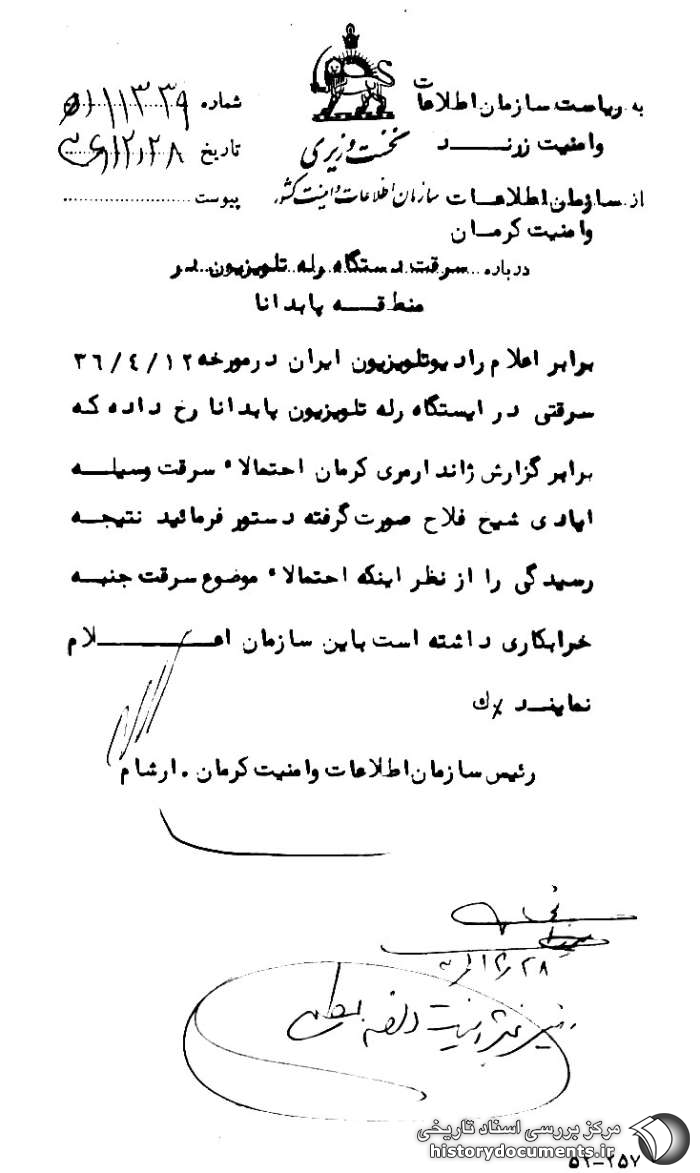 به ریاست سازمان اطلاعات
وامنیت زرند
نخست وزیری
سازمان اطلاعات و امنیت کشور
شماره
تاریخ
پیوست
از سازمان اطلاعات
وامنیت کرمان
درباره سرقت دستگاه رله تلویزیون در
منطقه پابدانا
برابر اعلام رادیوتلویزیون ایران درمورخه ۳۶/٤/۱۲
سرقتی در ایستگاه رله تلویزیون پابدانا رخ داده که
برابر گزارش ژاندارمری کرمان احتمالاً سرقت وسیله
ایادی شیخ فلاح صورت گرفته دستور فرمائید نتیجه
رسیدگی را از نظر اینکه احتمالاً موضوع سرقت جنبه
خرابکاری داشته است باین سازمان اعلام
نمایند
رئیس سازمان اطلاعات وامنیت کرمان . ارشام
مرکز بررسی اسناد تاریخی
historydocuments.ir
۵۲-۲۵۷